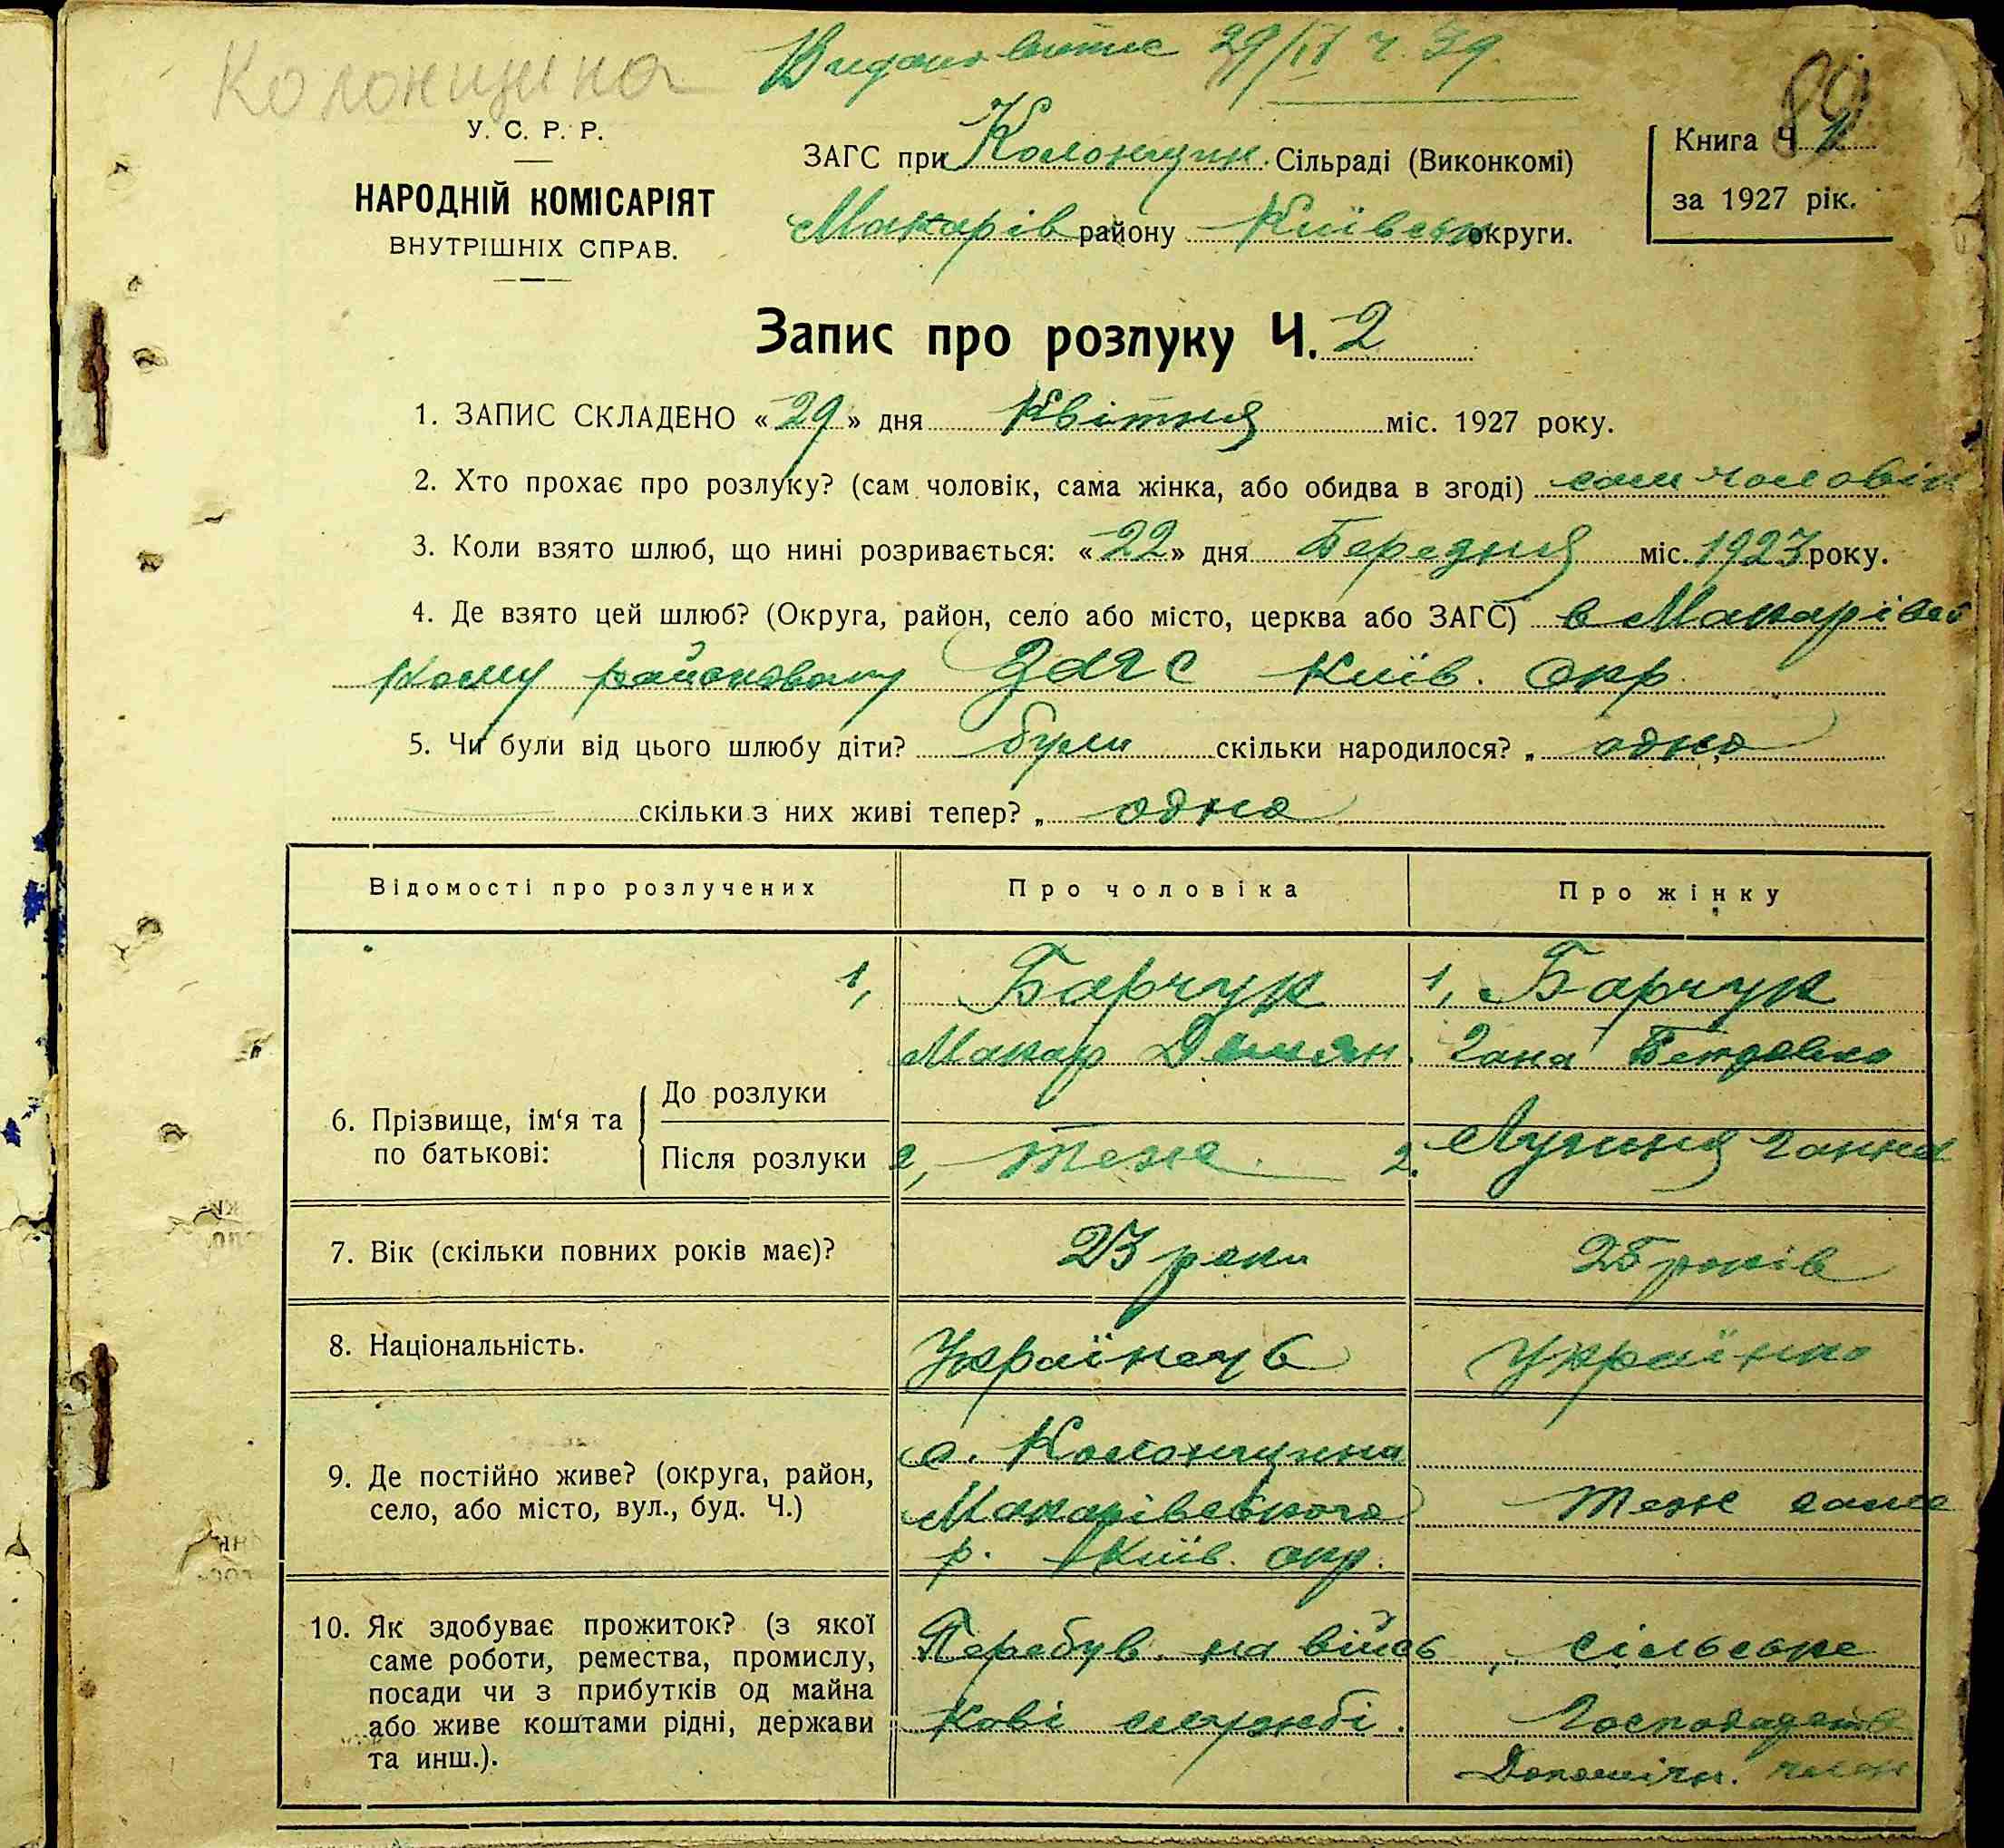 Колонщина
Видано витяг 29/IV ч. 39.
89
У. С. Р. Р.
НАРОДНІЙ КОМІСАРІЯТ
ВНУТРІШНІХ СПРАВ.
ЗАГС при Колонщин. Сільраді (Виконкомі)
Макарів району Київськ округи.
Книга Ч. 1
за 1927 рік.
Запис про розлуку Ч. 2
1. ЗАПИС СКЛАДЕНО « 29 » дня Квітня міс. 1927 року.
2. Хто прохає про розлуку? (сам чоловік, сама жінка, або обидва в згоді) сам чоловік
3. Коли взято шлюб, що нині розривається: « 22 » дня Березня міс. 1923 року.
4. Де взято цей шлюб? (Округа, район, село або місто, церква або ЗАГС) в Макарівсь
кому районовому ЗАГС Київ. окр.
5. Чи були від цього шлюбу діти? були скільки народилося? „ одно
скільки з них живі тепер? „ одно
Відомості про розлучених Про чоловіка Про жінку
6. Прізвище, ім‘я та по батькові:
До розлуки
1, Барчук
Макар Демян.
1, Барчук
Гана
Після розлуки
2, теж
2. Ганна
7. Вік (скільки повних років має)? 23 роки 25 років
8. Національність. Українець Українка
9. Де постійно живе? (округа, район,
село, або місто, вул., буд. Ч.)
с. Колонщина
Макарівського
р. Київ. окр.
теж саме
10. Як здобуває прожиток? (з якої
саме роботи, ремества, промислу,
посади чи з прибутків од майна
або живе коштами рідні, держави
та инш.).
Перебув. на війсь
кові службі.
сільське
Господарств
Допоміжн. член